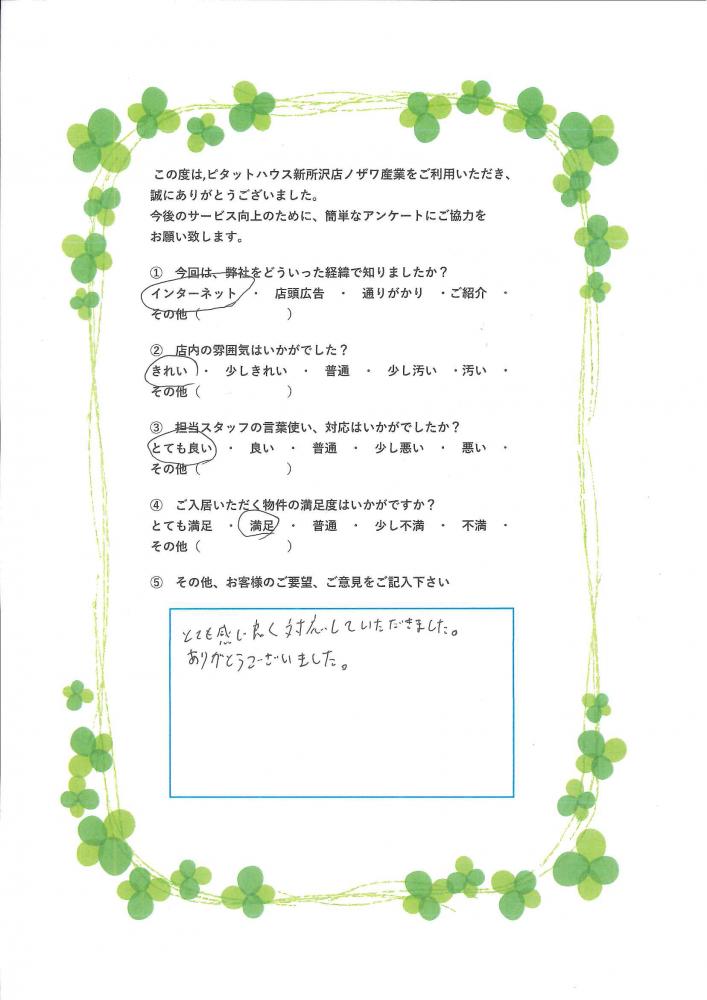 この度は,ピタットハウス新所沢店ノザワ産業をご利用いただき、
誠にありがとうございました。
今後のサービス向上のために、簡単なアンケートにご協力を
お願い致します。
① 今回は、弊社をどういった経緯で知りましたか？
インターネット ・ 店頭広告 ・ 通りがかり ・ご紹介 ・
その他（ ）
② 店内の雰囲気はいかがでした？
きれい ・ 少しきれい ・ 普通 ・ 少し汚い ・汚い ・
その他（ ）
③ 担当スタッフの言葉使い、対応はいかがでしたか？
とても良い ・ 良い ・ 普通 ・ 少し悪い ・ 悪い ・
その他（ ）
④ ご入居いただく物件の満足度はいかがですか？
とても満足 ・ 満足 ・ 普通 ・ 少し不満 ・ 不満 ・
その他（ ）
⑤ その他、お客様のご要望、ご意見をご記入下さい
とても感じ良く対応していただきました。
ありがとうございました。